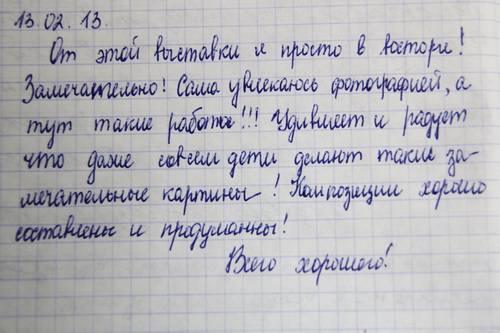 13.02.13.
От этой выставки я просто в восторге!
Замечательно! Сама увлекаюсь фотографией, а
тут такие работы!!! Удивляет и радует
что даже совсем дети делают такие за-
мечательные картины! Композиции хорошо
составлены и продуманны!
Всего хорошего!